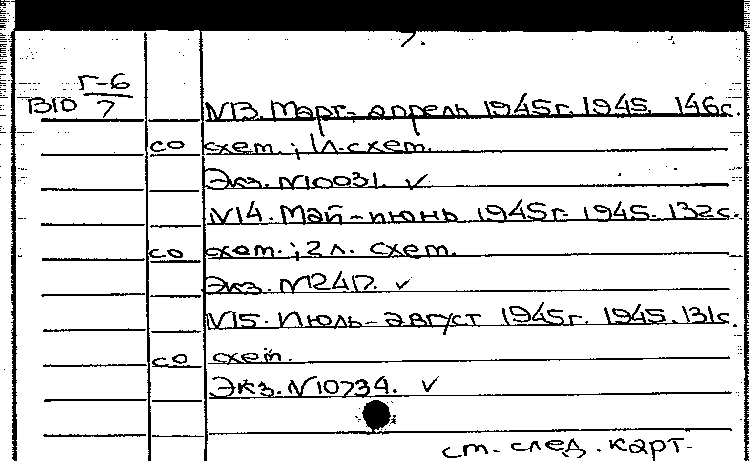 7.
Г-6
1310 7
N13. Март-апрель 1945г. 1945. 146с.
со схем.; 1л. схем.
Экз. N10031. ✓
N14. Май-июнь 1945г. 1945. 132с.
со схем.; 2 л. схем.
Экз. N2417. ✓
N15. Июль-август 1945г. 1945. 131с.
со схем.
Экз. N10734. ✓
см. след. карт.